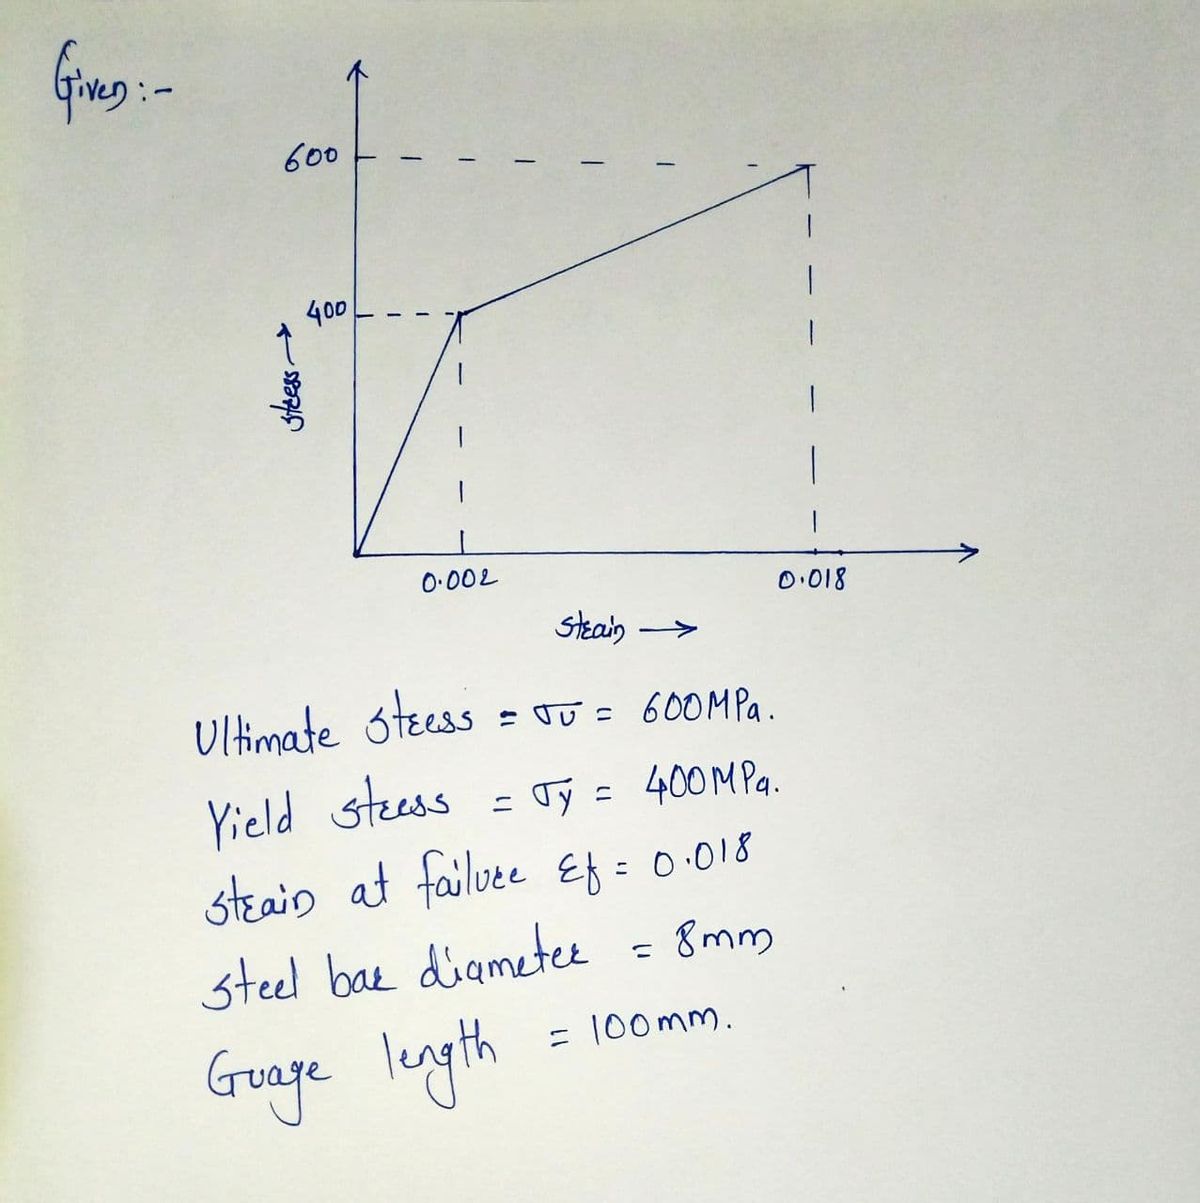 Given :-
600
400
stress →
0.002
0.018
strain →
Ultimate stress = σu = 600MPa.
Yield stress = σy = 400MPa.
strain at failure εf = 0.018
steel bar diameter = 8mm
Guage length = 100mm.